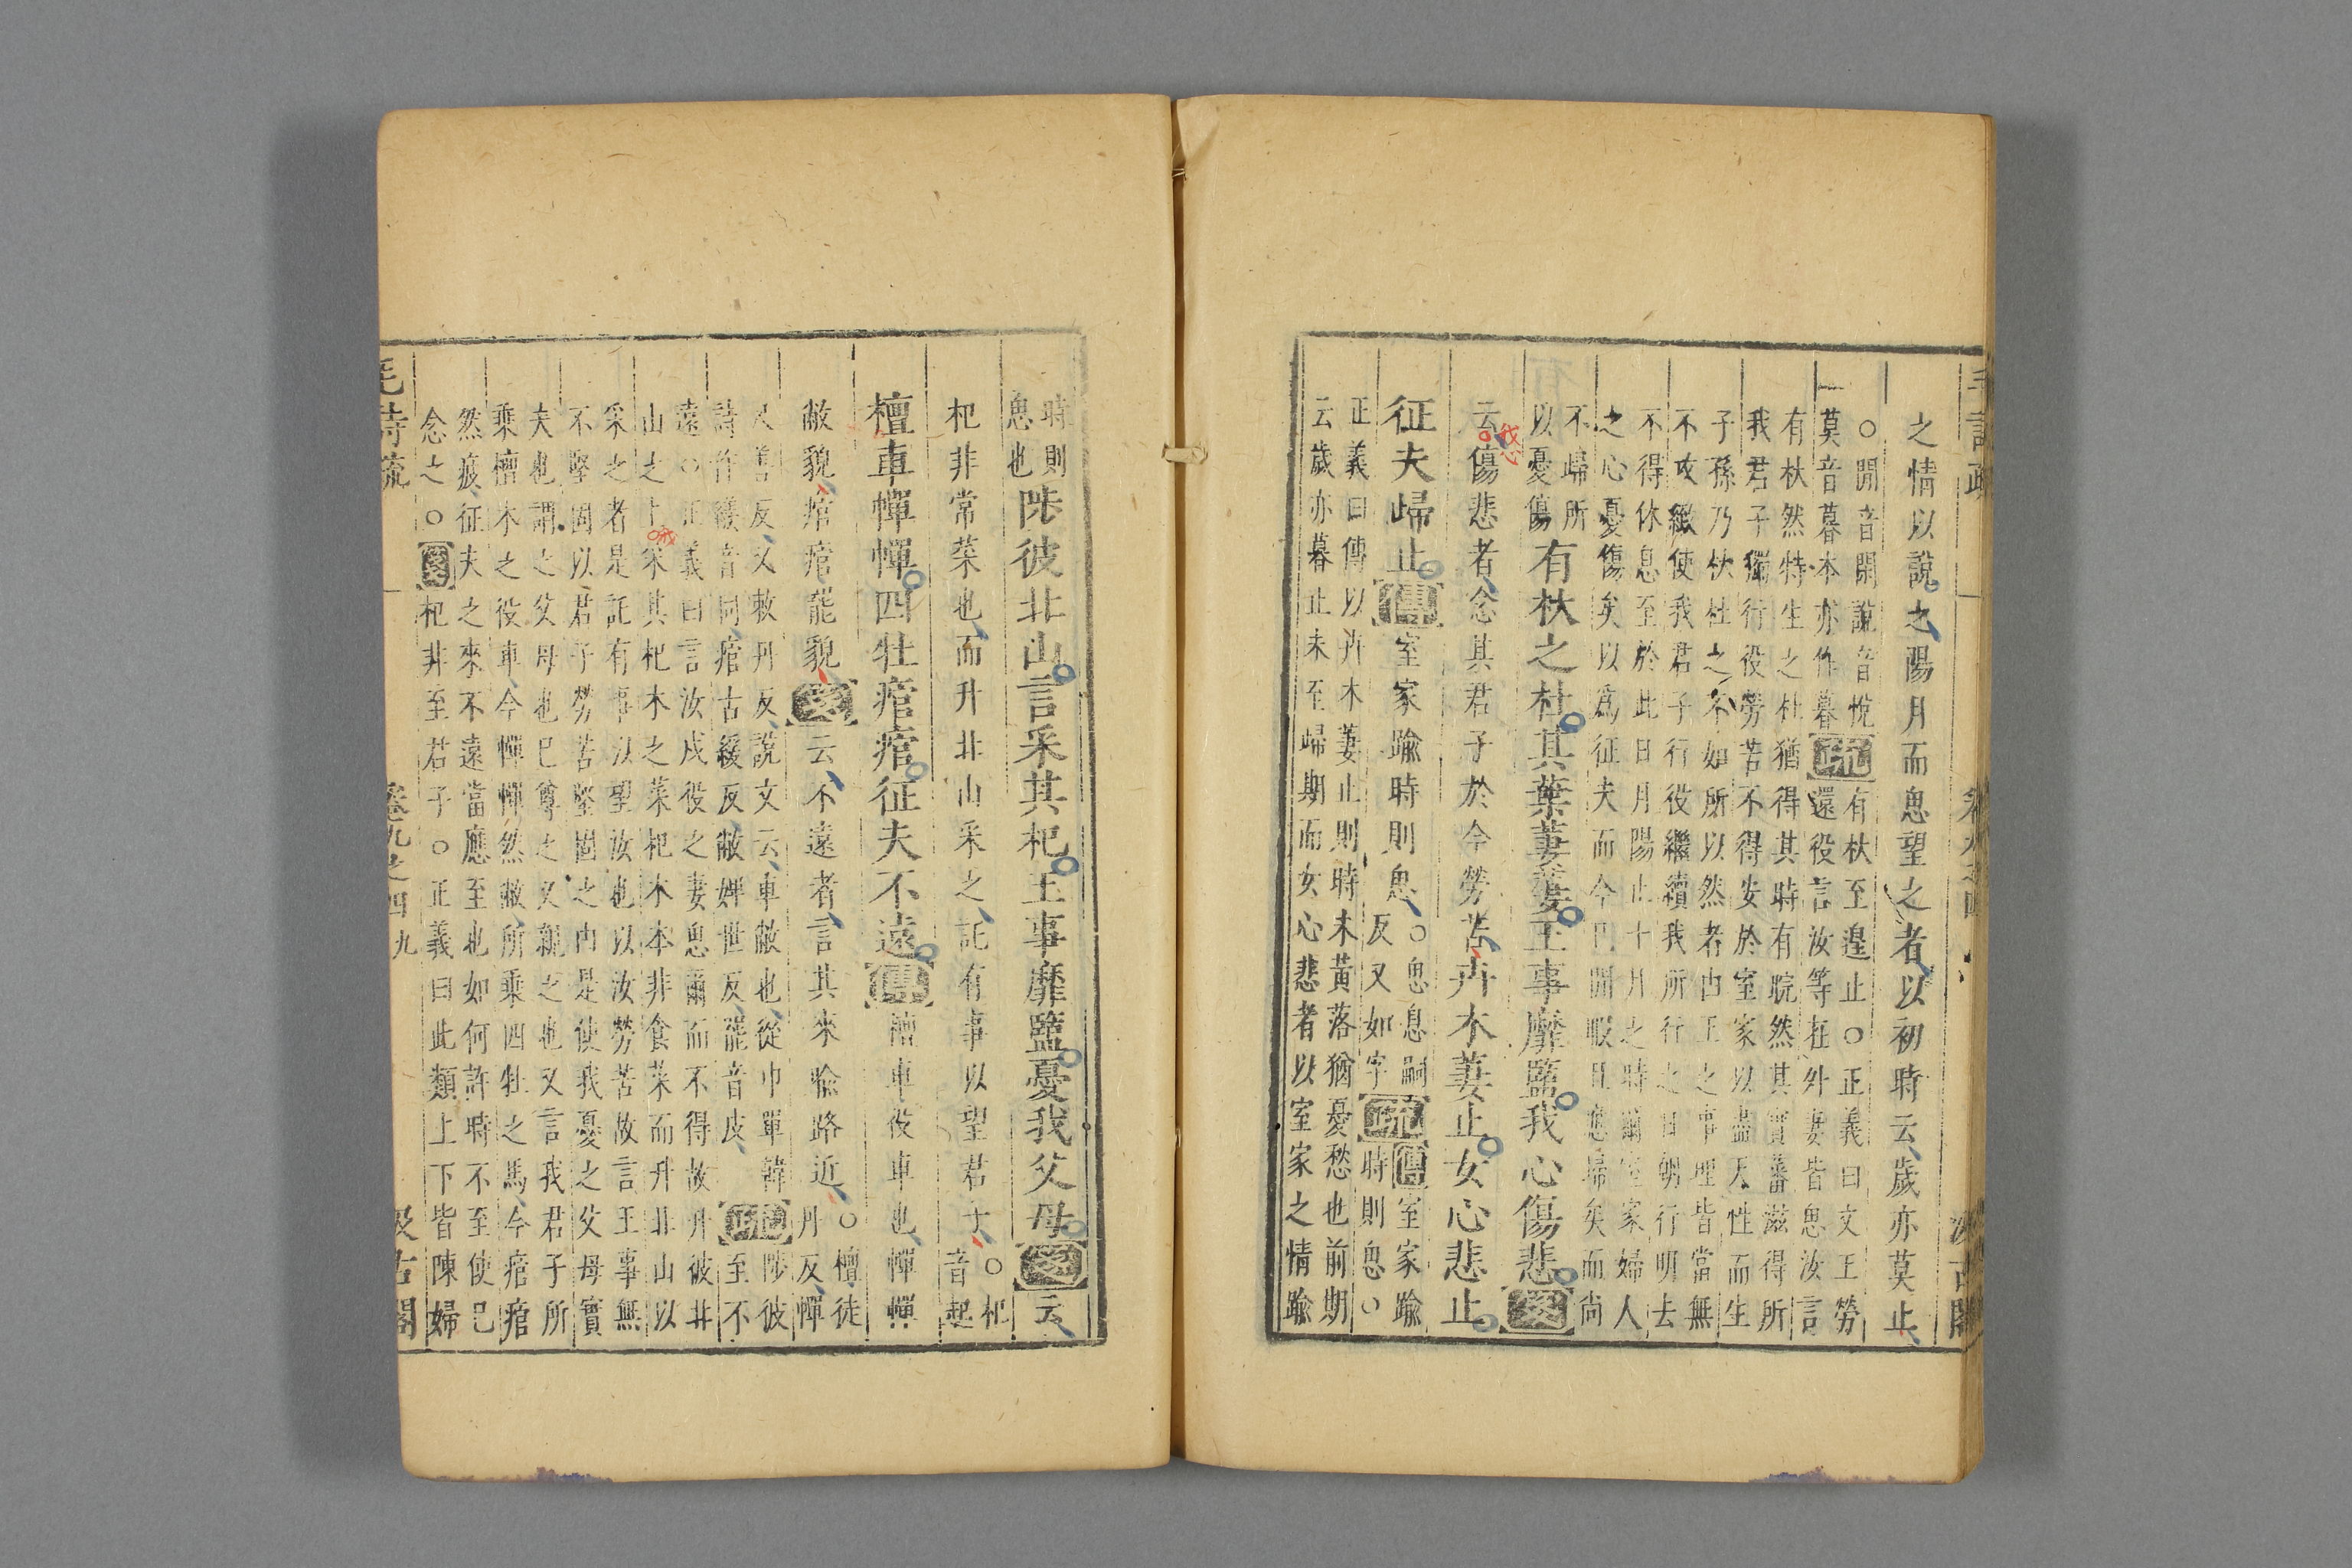 之情以說之陽月而思望之者以初時云歲亦莫止
○閒音閑說音悅
莫音暮本亦作暮
疏
有杕至遑止○正義曰文王勞
還役言汝等在外妻皆思汝言
有杕然特生之杜猶得其時有睆然其實蕃滋得所
我君子獨行役勞苦不得安於室家以盡天性而生
子孫乃杕杜之不如所以然者由王之事理皆當無
不攻緻使我君子行役繼續我所行之日朝行明去
不得休息至於此日月陽止十月之時爾室家婦人
之心憂傷矣以爲征夫而今已閒暇且應歸矣而尚
不歸所
以憂傷
有杕之杜其葉萋萋王事靡盬我心傷悲箋
云傷悲者念其君子於今勞苦卉木萋止女心悲止
征夫歸止傳室家踰時則思
○思息嗣
反又如字
疏
傳室家踰
時則思○
正義曰傳以卉木萋止則時未黃落猶憂愁也前期
云歲亦暮止未至歸期而女心悲者以室家之情踰
時則
思也
陟彼北山言采其杞王事靡盬憂我父母箋云
杞非常菜也而升北山采之託有事以望君子
○杞
音起
檀車幝幝四牡痯痯征夫不遠傳檀車役車也幝幝
敝貌痯痯罷貌箋云不遠者言其來喻路近
○檀徒
丹反幝
尺善反又敕丹反說文云車敝也從巾單韓
詩作緩音同痯古緩反敝婢世反罷音皮
疏
陟彼
至不
遠○正義曰言汝戍役之妻思爾而不得故升彼北
山之上采其杞木之菜杞木本非食菜而升北山以
采之者是託有事以望汝也以汝勞苦故言王事無
不堅固以君子勞苦堅固之由是使我憂之父母實
夫也謂之父母也已尊之又親之也又言我君子所
乘檀木之役車今幝幝然敝所乘四牡之馬今痯痯
然疲征夫之來不遠當應至也如何許時不至使已
念之○箋杞非至君子○正義曰此類上下皆陳婦
毛詩疏
卷九之四
九
汲古閣